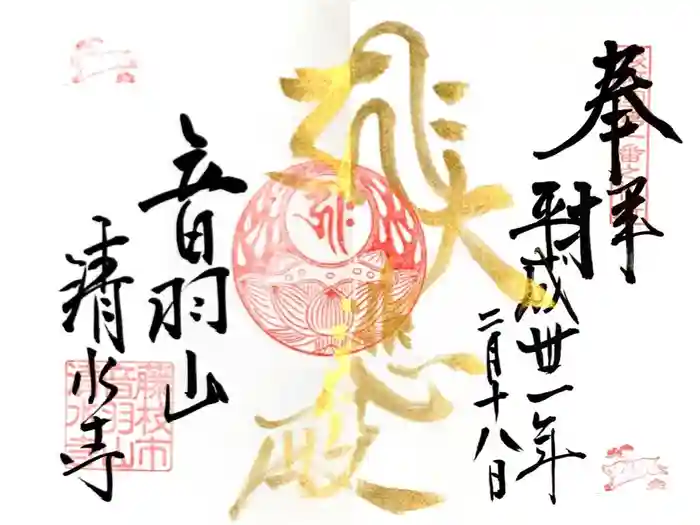 奉拝
平成卅一年
二月十八日
大悲殿
音羽山
清水寺
藤枝市
音羽山
清水寺